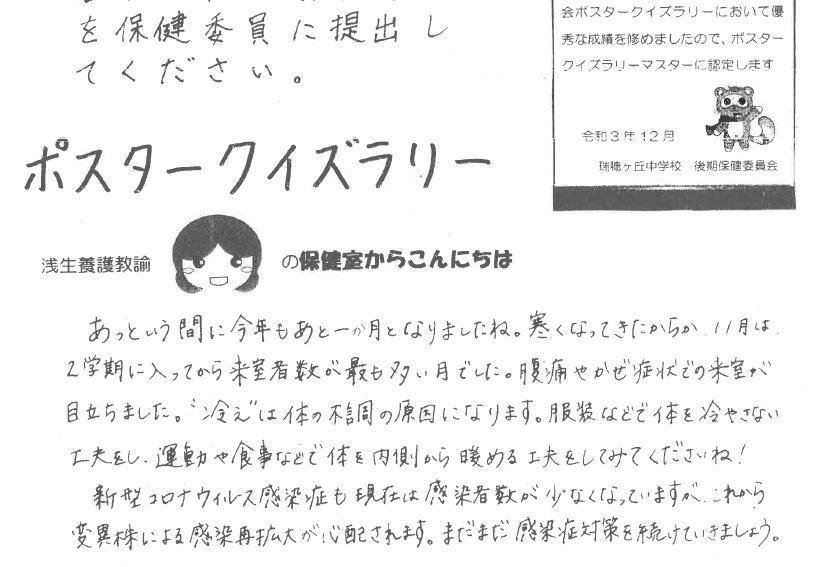 を保健委員に提出し
てください。
会ポスタークイズラリーにおいて優
秀な成績を修めましたので、ポスター
クイズラリーマスターに認定します
令和3年12月
瑞穂ヶ丘中学校 後期保健委員会
ポスタークイズラリー
浅生養護教諭 の保健室からこんにちは
あっという間に今年もあと一か月となりましたね。寒くなってきたからか、11月は、
2学期に入ってから来室者数が最も多い月でした。腹痛やかぜ症状での来室が
目立ちました。“冷え”は体の不調の原因になります。服装などで体を冷やさない
工夫をし、運動や食事などで体を内側から暖める工夫をしてみてくださいね!
新型コロナウィルス感染症も現在は感染者数が少なくなっていますが、これから
変異株による感染再拡大が心配されます。まだまだ感染症対策を続けていきましょう。